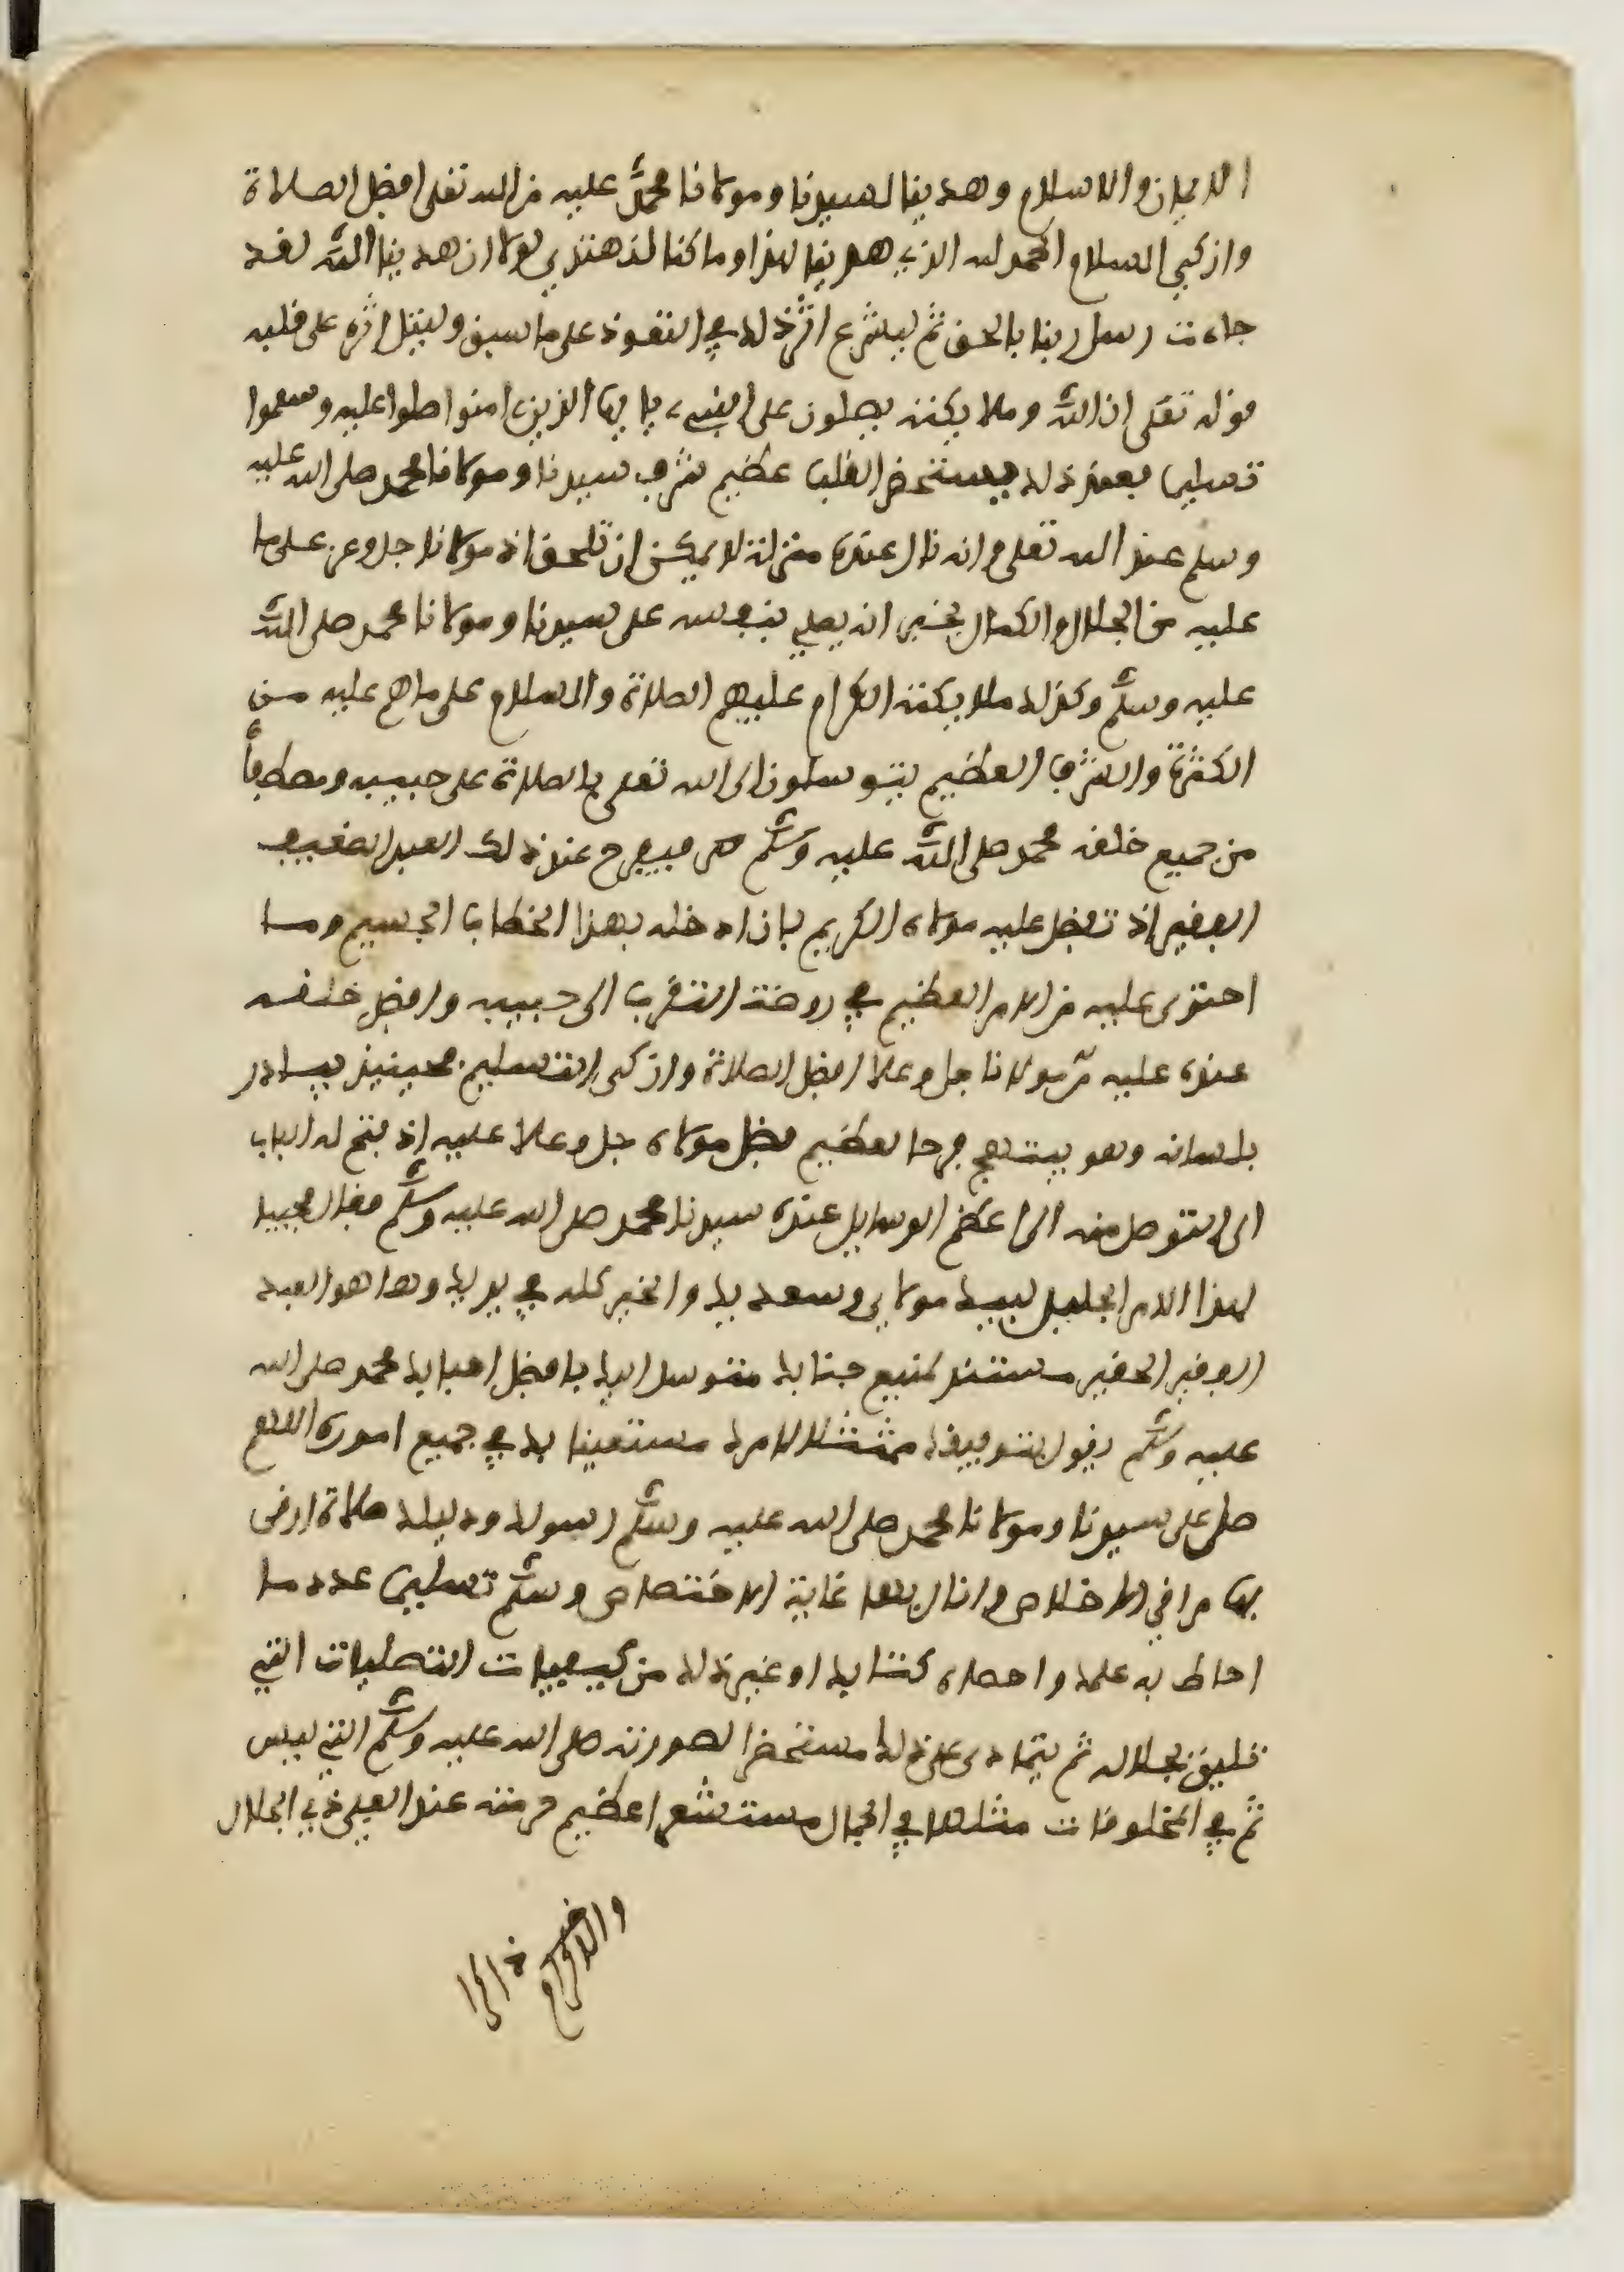 الايمان والاسلام وهدينا لسيدنا ومولانا محمد عليه من الله تعلى افضل الصلاة
وازكى السلام الحمد لله الذي هدينا لهذا وما كنا لنهتدي لولا ان هدينا الله لقد
جاءت رسل ربنا بالحق ثم ليشرع اثر ذلك في التعوذ على ما سبق وليتل اثره على قلبه
قوله تعلى ان الله وملايكته يصلون على النبيء يا ايها الذين امنوا صلوا عليه وسلموا
تسليما فعند ذلك يستحضر القلب عظيم شرف سيدنا ومولانا محمد صلى الله عليه
وسلم عند الله تعلى وانه نال عنده منزلة لا يمكن ان تلحق اذ مولانا جل وعز على ما
عليه من الجلال والكمال يخبر انه يصلي بنفسه على سيدنا ومولانا محمد صلى الله
عليه وسلم وكذلك ملايكته الكرام عليهم الصلاة والسلام على ما هم عليه من
الكثرة والشرف العظيم يتوسلون الى الله تعلى بالصلاة على حبيبه ومصطفاه
من جميع خلقه محمد صلى الله عليه وسلم فيفرح عند ذلك العبد الضعيف
الفقير اذ تفضل عليه مولاه الكريم بان ادخله بهذا الخطاب الجسيم وما
احتوى عليه من الامر العظيم في روضة التقرب الى حبيبه وافضل خلقه
عنده عليه من مولانا جل وعلا افضل الصلاة وازكى التسليم فحينيذ يبادر
بلسانه وهو يبتهج فرحا لعظيم فضل مولاه جل وعلا عليه اذ فتح له الباب
الى التوصل منه الى اعظم الوسايل عنده سيدنا محمد صلى الله عليه وسلم فقال مجيبا
لهذا الامر الجليل لبيك مولاي وسعديك والخير كله في يديك وها هو العبد
الفقير الحقير مستند لمنيع جنابك متوسل اليك بافضل احبابك محمد صلى الله
عليه وسلم يقول بتوفيقك ممتثلا لامرك مستعينا بك في جميع اموره اللهم
صل على سيدنا ومولانا محمد صلى الله عليه وسلم رسولك ودليلك صلاة ارقى
بها مراقي الاخلاص وانال بها غاية الاختصاص وسلم تسليما عدد ما
احاط به علمك واحصاه كتابك او غير ذلك من كيفيات التصليات التي
تليق بجلاله ثم يتمادى على ذلك مستحضرا لصورته صلى الله عليه وسلم التي ليس
ثم في المخلوقات مثلها في الجمال مستشعرا عظيم حرمته عند العلي ذي الجلال
والاكرام